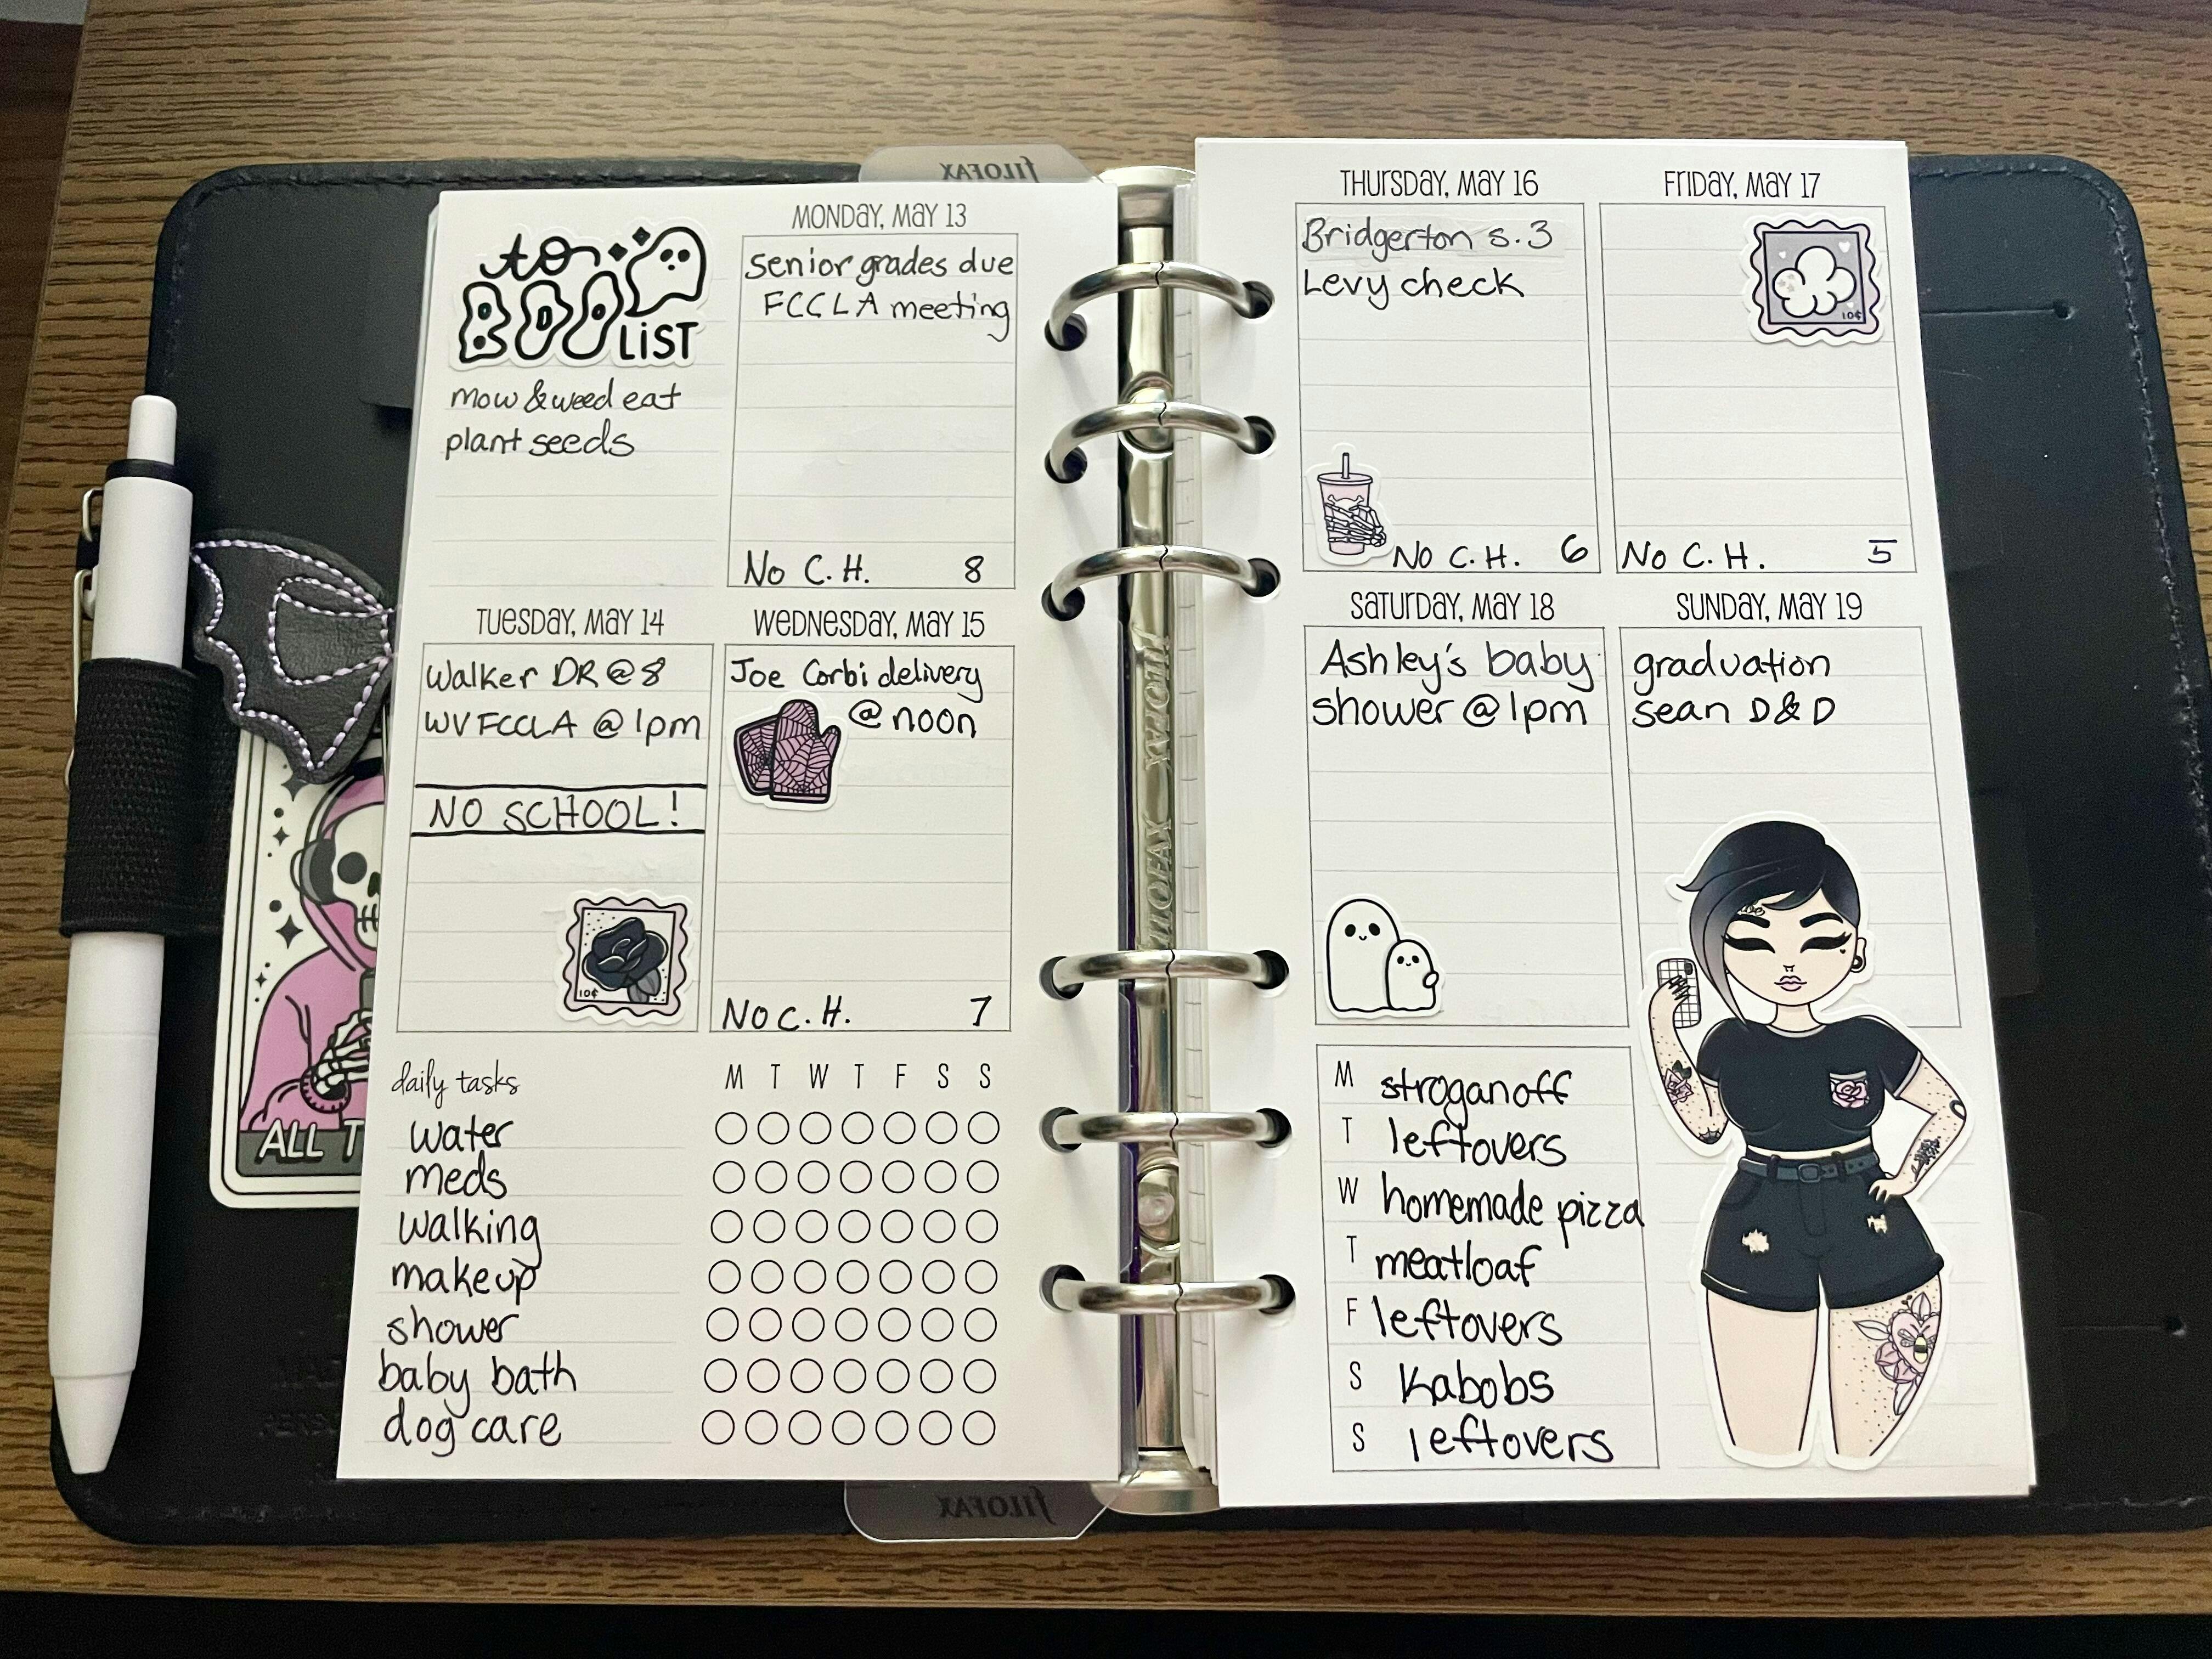 FILOFAX
to
BOO
LIST
mow & weed eat
plant seeds
MONDAY, MAY 13
senior grades due
FCCLA meeting
No C.H. 8
TUESDAY, MAY 14
Walker DR @ 8
WV FCCLA @ 1pm
NO SCHOOL!
10¢
WEDNESDAY, MAY 15
Joe Corbi delivery
@ noon
No C.H. 7
daily tasks M T W T F S S
water
meds
walking
makeup
shower
baby bath
dog care
ALL T
FILOFAX
filofax
FILOFAX
THURSDAY, MAY 16
Bridgerton s.3
Levy check
No C.H. 6
FRIDAY, MAY 17
10¢
No C.H. 5
SATURDAY, MAY 18
Ashley's baby
shower @ 1pm
SUNDAY, MAY 19
graduation
sean D&D
M stroganoff
T leftovers
W homemade pizza
T meatloaf
F leftovers
S Kabobs
S leftovers